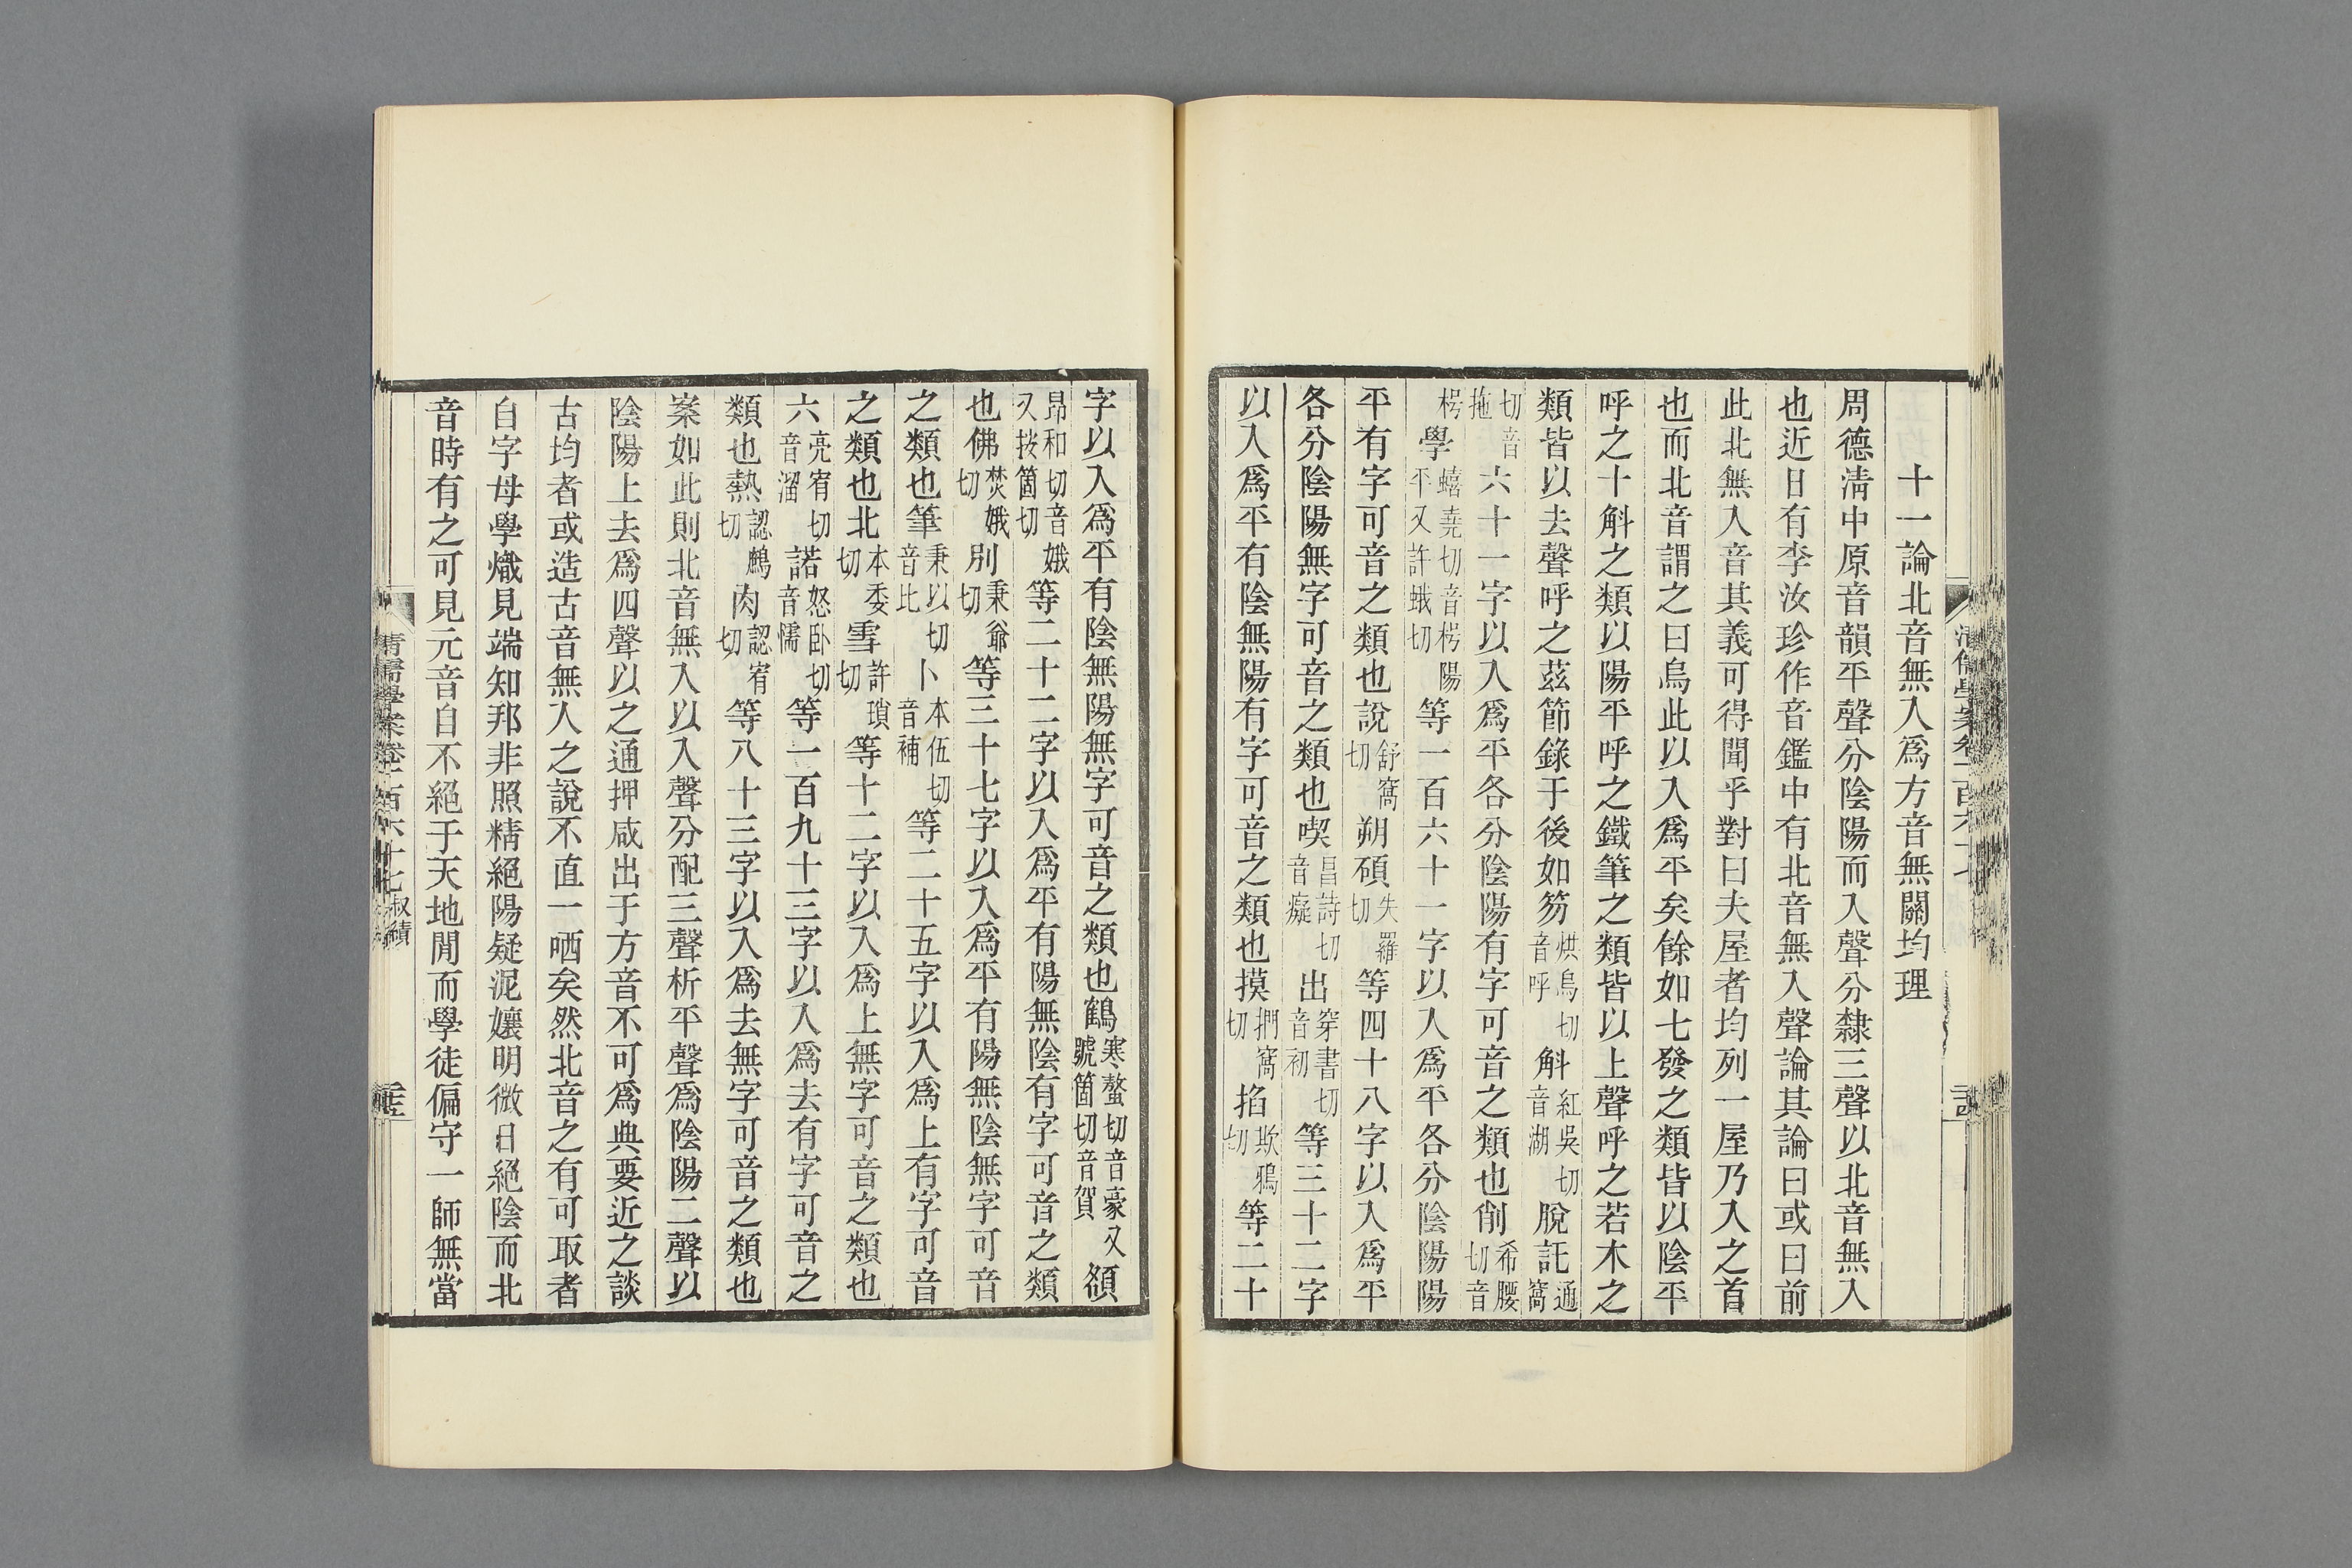 十一論北音無入爲方音無關均理
周德清中原音韻平聲分陰陽而入聲分隸三聲以北音無入
也近日有李汝珍作音鑑中有北音無入聲論其論曰或曰前
此北無入音其義可得聞乎對曰夫屋者均列一屋乃入之首
也而北音謂之曰烏此以入爲平矣餘如七發之類皆以陰平
呼之十斛之類以陽平呼之鐵筆之類皆以上聲呼之若木之
類皆以去聲呼之茲節錄于後如笏烘烏切音呼斛紅吳切音湖脫託通窩
切音拖六十一字以入爲平各分陰陽有字可音之類也削希腰切音
枵學蟢堯切音枵陽平又許蛾切等一百六十一字以入爲平各分陰陽陽
平有字可音之類也說舒窩切朔碩失羅切等四十八字以入爲平
各分陰陽無字可音之類也喫昌詩切音癡出穿書切音初等三十二字
以入爲平有陰無陽有字可音之類也摸捫窩切掐欺鴉切等二十
字以入爲平有陰無陽無字可音之類也鶴寒螯切音豪又號箇切音賀額
昂和切音娥又按箇切等二十二字以入爲平有陽無陰有字可音之類
也佛焚娥切別秉爺切等三十七字以入爲平有陽無陰無字可音
之類也筆秉以切音比卜本伍切音補等二十五字以入爲上有字可音
之類也北本委切雪許瑣切等十二字以入爲上無字可音之類也
六亮宥切音溜諾怒卧切音懦等一百九十三字以入爲去有字可音之
類也熱認鷓切肉認宥切等八十三字以入爲去無字可音之類也
案如此則北音無入以入聲分配三聲析平聲爲陰陽二聲以
陰陽上去爲四聲以之通押咸出于方音不可爲典要近之談
古均者或造古音無入之說不直一哂矣然北音之有可取者
自字母學熾見端知邦非照精絕陽疑泥孃明微日絕陰而北
音時有之可見元音自不絕于天地閒而學徒偏守一師無當
清儒學案卷一百六十七叔績